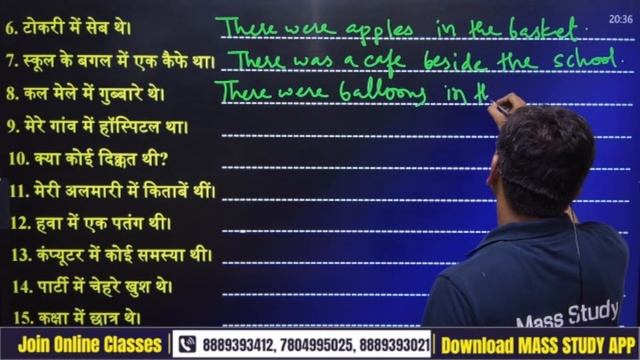 20:36
6. टोकरी में सेब थे। There were apples in the basket.
7. स्कूल के बगल में एक कैफे था। There was a cafe beside the school.
8. कल मेले में गुब्बारे थे। There were balloons in th
9. मेरे गांव में हॉस्पिटल था।
10. क्या कोई दिक्कत थी?
11. मेरी अलमारी में किताबें थीं।
12. हवा में एक पतंग थी।
13. कंप्यूटर में कोई समस्या थी।
14. पार्टी में चेहरे खुश थे।
15. कक्षा में छात्र थे।
Mass Study
Join Online Classes 8889393412, 7804995025, 8889393021 Download MASS STUDY APP